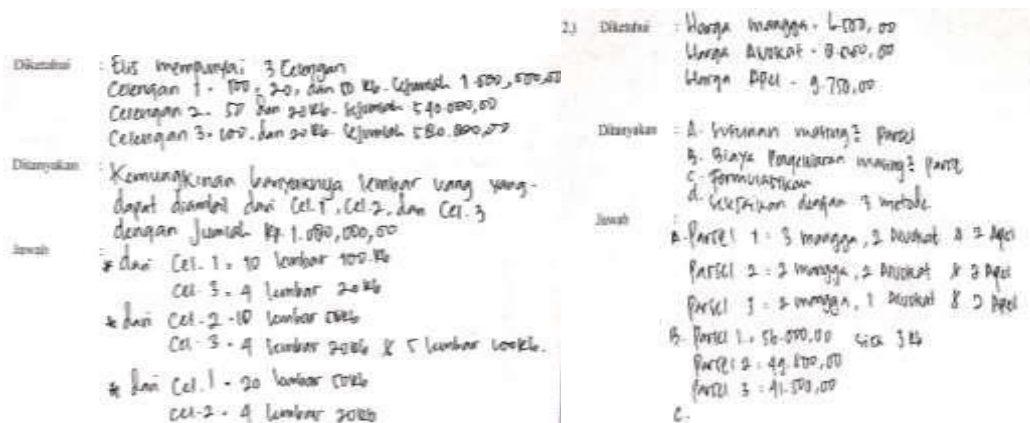 Diketahui : Elis mempunyai 3 Celengan
Celengan 1 - 100, 20, dan 50 Rb. Sejumlah
Celengan 2 - 50 dan 20 Rb. Sejumlah 540.000,00
Celengan 3 - 100. dan 20 Rb. Sejumlah 580.000,00
Ditanyakan : Kemungkinan banyaknya lembar uang yang
dapat diambil dari Cel.1, Cel.2, dan Cel. 3
dengan Jumlah Rp 1.080,000,00
Jawab : * dari Cel. 1 = 10 lembar 100 Rb
Cel. 3 = 4 lembar 20 Rb
* dari Cel. 2 - 10 lembar 50Rb
Cel. 3 - 4 lembar 20Rb & 5 lembar 100Rb.
* dari Cel. 1 - 20 lembar 50Rb
Cel. 2 - 4 lembar 20Rb
2.) Diketahui : Harga mangga - 6.500,00
Harga Avokat - 8.000,00
Harga Apel - 9.750,00
Ditanyakan : A. Susunan masing2 Parsel
B. Biaya Pengeluaran masing2 Parsel
C. Formulasikan
d. Selesaikan dengan 3 metode
Jawab : A. Parsel 1 : 3 mangga, 2 Avokat & 2 Apel
Parsel 2 : 2 mangga, 2 Avokat & 2 Apel
Parsel 3 : 2 mangga, 1 Avokat & 2 Apel
B. Parsel 1 : 56.000,00 sisa 3 Rb
Parsel 2 : 49.500,00
Parsel 3 : 41.500,00
C.